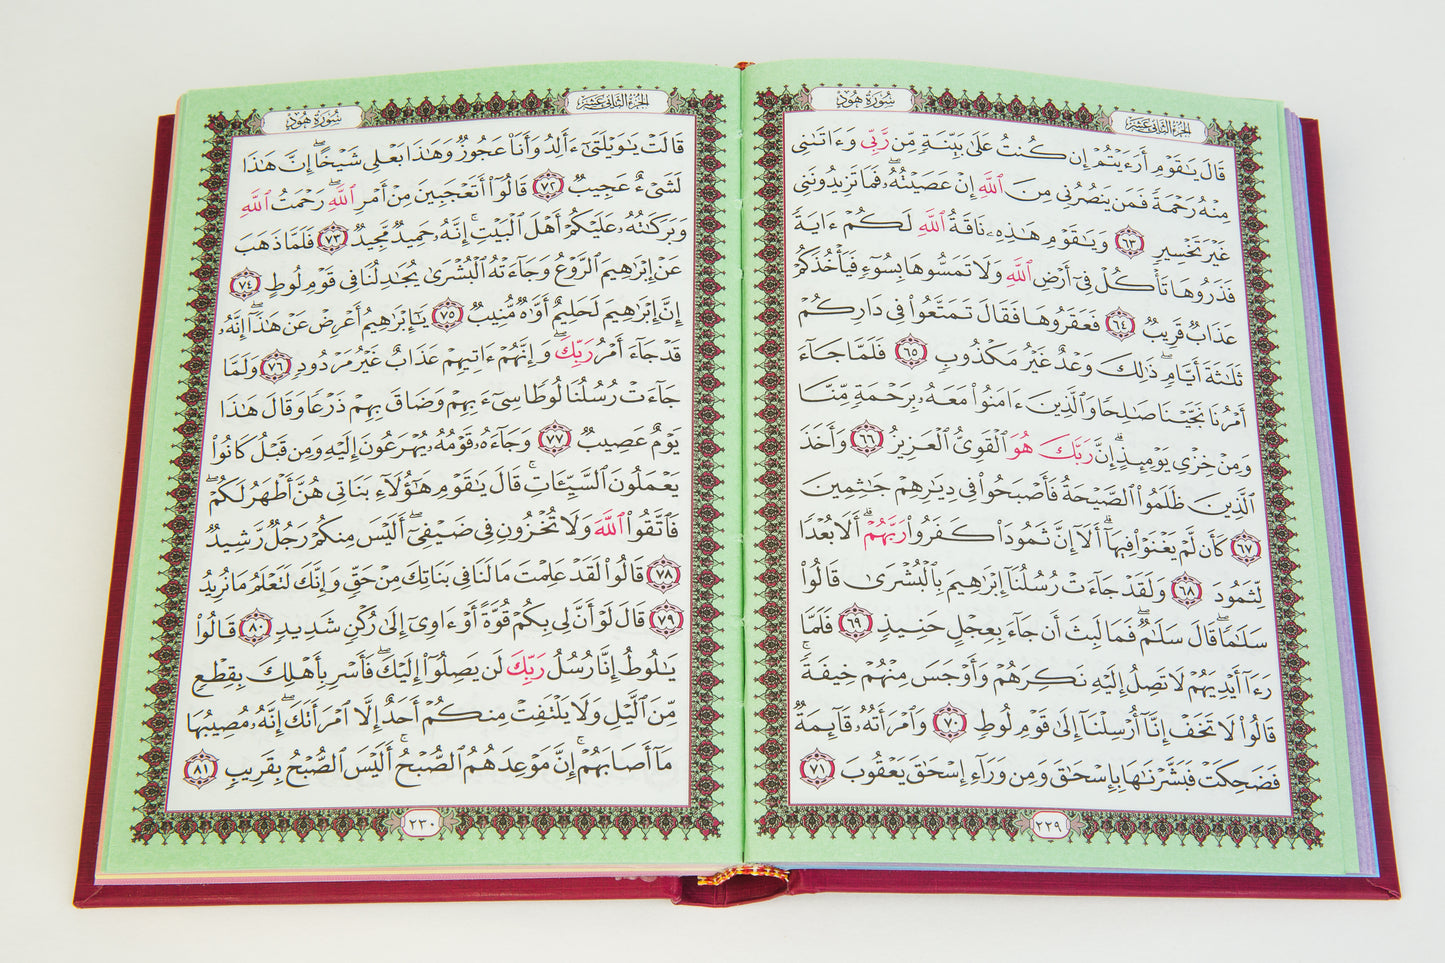 سُورَةُ هُودٍ
الجُزْءُ الثَّانِي عَشَرَ
قَالَ يَٰقَوْمِ أَرَءَيْتُمْ إِن كُنتُ عَلَىٰ بَيِّنَةٍ مِّن رَّبِّي وَءَاتَىٰنِي
مِنْهُ رَحْمَةً فَمَن يَنصُرُنِي مِنَ ٱللَّهِ إِنْ عَصَيْتُهُۥۖ فَمَا تَزِيدُونَنِي
غَيْرَ تَخْسِيرٍ ٦٣ وَيَٰقَوْمِ هَٰذِهِۦ نَاقَةُ ٱللَّهِ لَكُمْ ءَايَةً
فَذَرُوهَا تَأْكُلْ فِيٓ أَرْضِ ٱللَّهِ وَلَا تَمَسُّوهَا بِسُوٓءٍ فَيَأْخُذَكُمْ
عَذَابٌ قَرِيبٌ ٦٤ فَعَقَرُوهَا فَقَالَ تَمَتَّعُوا۟ فِي دَارِكُمْ
ثَلَٰثَةَ أَيَّامٍۖ ذَٰلِكَ وَعْدٌ غَيْرُ مَكْذُوبٍ ٦٥ فَلَمَّا جَآءَ
أَمْرُنَا نَجَّيْنَا صَٰلِحًا وَٱلَّذِينَ ءَامَنُوا۟ مَعَهُۥ بِرَحْمَةٍ مِّنَّا
وَمِنْ خِزْيِ يَوْمِئِذٍۗ إِنَّ رَبَّكَ هُوَ ٱلْقَوِيُّ ٱلْعَزِيزُ ٦٦ وَأَخَذَ
ٱلَّذِينَ ظَلَمُوا۟ ٱلصَّيْحَةُ فَأَصْبَحُوا۟ فِي دِيَٰرِهِمْ جَٰثِمِينَ
٦٧ كَأَن لَّمْ يَغْنَوْا۟ فِيهَآۗ أَلَآ إِنَّ ثَمُودَا۟ كَفَرُوا۟ رَبَّهُمْۗ أَلَا بُعْدًا
لِّثَمُودَ ٦٨ وَلَقَدْ جَآءَتْ رُسُلُنَآ إِبْرَٰهِيمَ بِٱلْبُشْرَىٰ قَالُوا۟
سَلَٰمًاۖ قَالَ سَلَٰمٌۖ فَمَا لَبِثَ أَن جَآءَ بِعِجْلٍ حَنِيذٍ ٦٩ فَلَمَّا
رَءَآ أَيْدِيَهُمْ لَا تَصِلُ إِلَيْهِ نَكِرَهُمْ وَأَوْجَسَ مِنْهُمْ خِيفَةًۚ
قَالُوا۟ لَا تَخَفْ إِنَّآ أُرْسِلْنَآ إِلَىٰ قَوْمِ لُوطٍ ٧٠ وَٱمْرَأَتُهُۥ قَآئِمَةٌ
فَضَحِكَتْ فَبَشَّرْنَٰهَا بِإِسْحَٰقَ وَمِن وَرَآءِ إِسْحَٰقَ يَعْقُوبَ ٧١
٢٢٩
الجُزْءُ الثَّانِي عَشَرَ
سُورَةُ هُودٍ
قَالَتْ يَٰوَيْلَتَىٰٓ ءَأَلِدُ وَأَنَا۠ عَجُوزٌ وَهَٰذَا بَعْلِي شَيْخًاۖ إِنَّ هَٰذَا
لَشَيْءٌ عَجِيبٌ ٧٢ قَالُوٓا۟ أَتَعْجَبِينَ مِنْ أَمْرِ ٱللَّهِۖ رَحْمَتُ ٱللَّهِ
وَبَرَكَٰتُهُۥ عَلَيْكُمْ أَهْلَ ٱلْبَيْتِۚ إِنَّهُۥ حَمِيدٌ مَّجِيدٌ ٧٣ فَلَمَّا ذَهَبَ
عَنْ إِبْرَٰهِيمَ ٱلرَّوْعُ وَجَآءَتْهُ ٱلْبُشْرَىٰ يُجَٰدِلُنَا فِي قَوْمِ لُوطٍ ٧٤
إِنَّ إِبْرَٰهِيمَ لَحَلِيمٌ أَوَّٰهٌ مُّنِيبٌ ٧٥ يَٰٓإِبْرَٰهِيمُ أَعْرِضْ عَنْ هَٰذَآۖ إِنَّهُۥ
قَدْ جَآءَ أَمْرُ رَبِّكَۖ وَإِنَّهُمْ ءَاتِيهِمْ عَذَابٌ غَيْرُ مَرْدُودٍ ٧٦ وَلَمَّا
جَآءَتْ رُسُلُنَا لُوطًا سِيٓءَ بِهِمْ وَضَاقَ بِهِمْ ذَرْعًا وَقَالَ هَٰذَا
يَوْمٌ عَصِيبٌ ٧٧ وَجَآءَهُۥ قَوْمُهُۥ يُهْرَعُونَ إِلَيْهِ وَمِن قَبْلُ كَانُوا۟
يَعْمَلُونَ ٱلسَّيِّـَٔاتِۚ قَالَ يَٰقَوْمِ هَٰٓؤُلَآءِ بَنَاتِي هُنَّ أَطْهَرُ لَكُمْۖ
فَٱتَّقُوا۟ ٱللَّهَ وَلَا تُخْزُونِ فِي ضَيْفِيٓۖ أَلَيْسَ مِنكُمْ رَجُلٌ رَّشِيدٌ
٧٨ قَالُوا۟ لَقَدْ عَلِمْتَ مَا لَنَا فِي بَنَاتِكَ مِنْ حَقٍّ وَإِنَّكَ لَتَعْلَمُ مَا نُرِيدُ
٧٩ قَالَ لَوْ أَنَّ لِي بِكُمْ قُوَّةً أَوْ ءَاوِيٓ إِلَىٰ رُكْنٍ شَدِيدٍ ٨٠ قَالُوا۟
يَٰلُوطُ إِنَّا رُسُلُ رَبِّكَ لَن يَصِلُوٓا۟ إِلَيْكَۖ فَأَسْرِ بِأَهْلِكَ بِقِطْعٍ
مِّنَ ٱلَّيْلِ وَلَا يَلْتَفِتْ مِنكُمْ أَحَدٌ إِلَّا ٱمْرَأَتَكَۖ إِنَّهُۥ مُصِيبُهَا
مَآ أَصَابَهُمْۚ إِنَّ مَوْعِدَهُمُ ٱلصُّبْحُۚ أَلَيْسَ ٱلصُّبْحُ بِقَرِيبٍ ٨١
٢٣٠